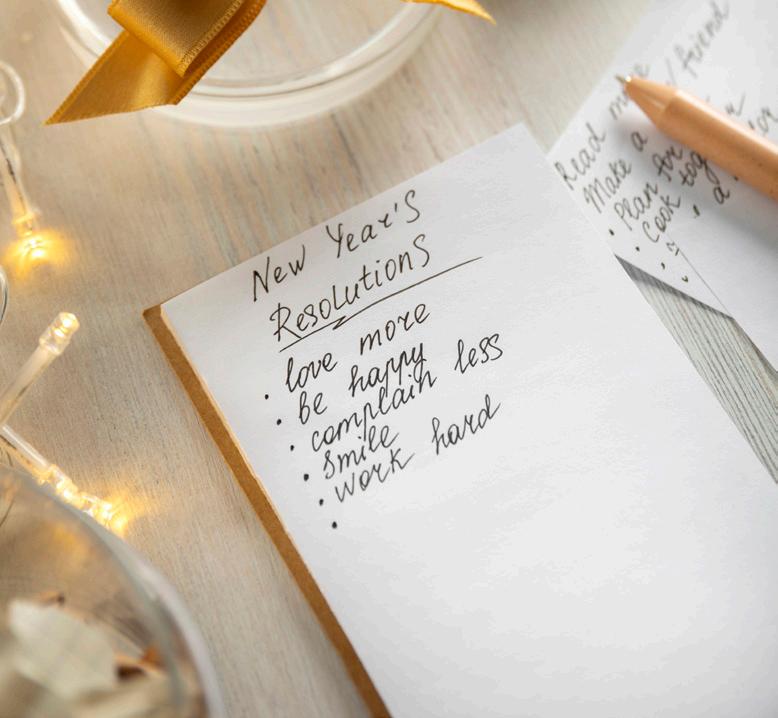 New Year's
Resolutions
• love more
• be happy
• complain less
• smile
• work hard
•
Read
Make a / friend
• Plan for
• Cook
• a